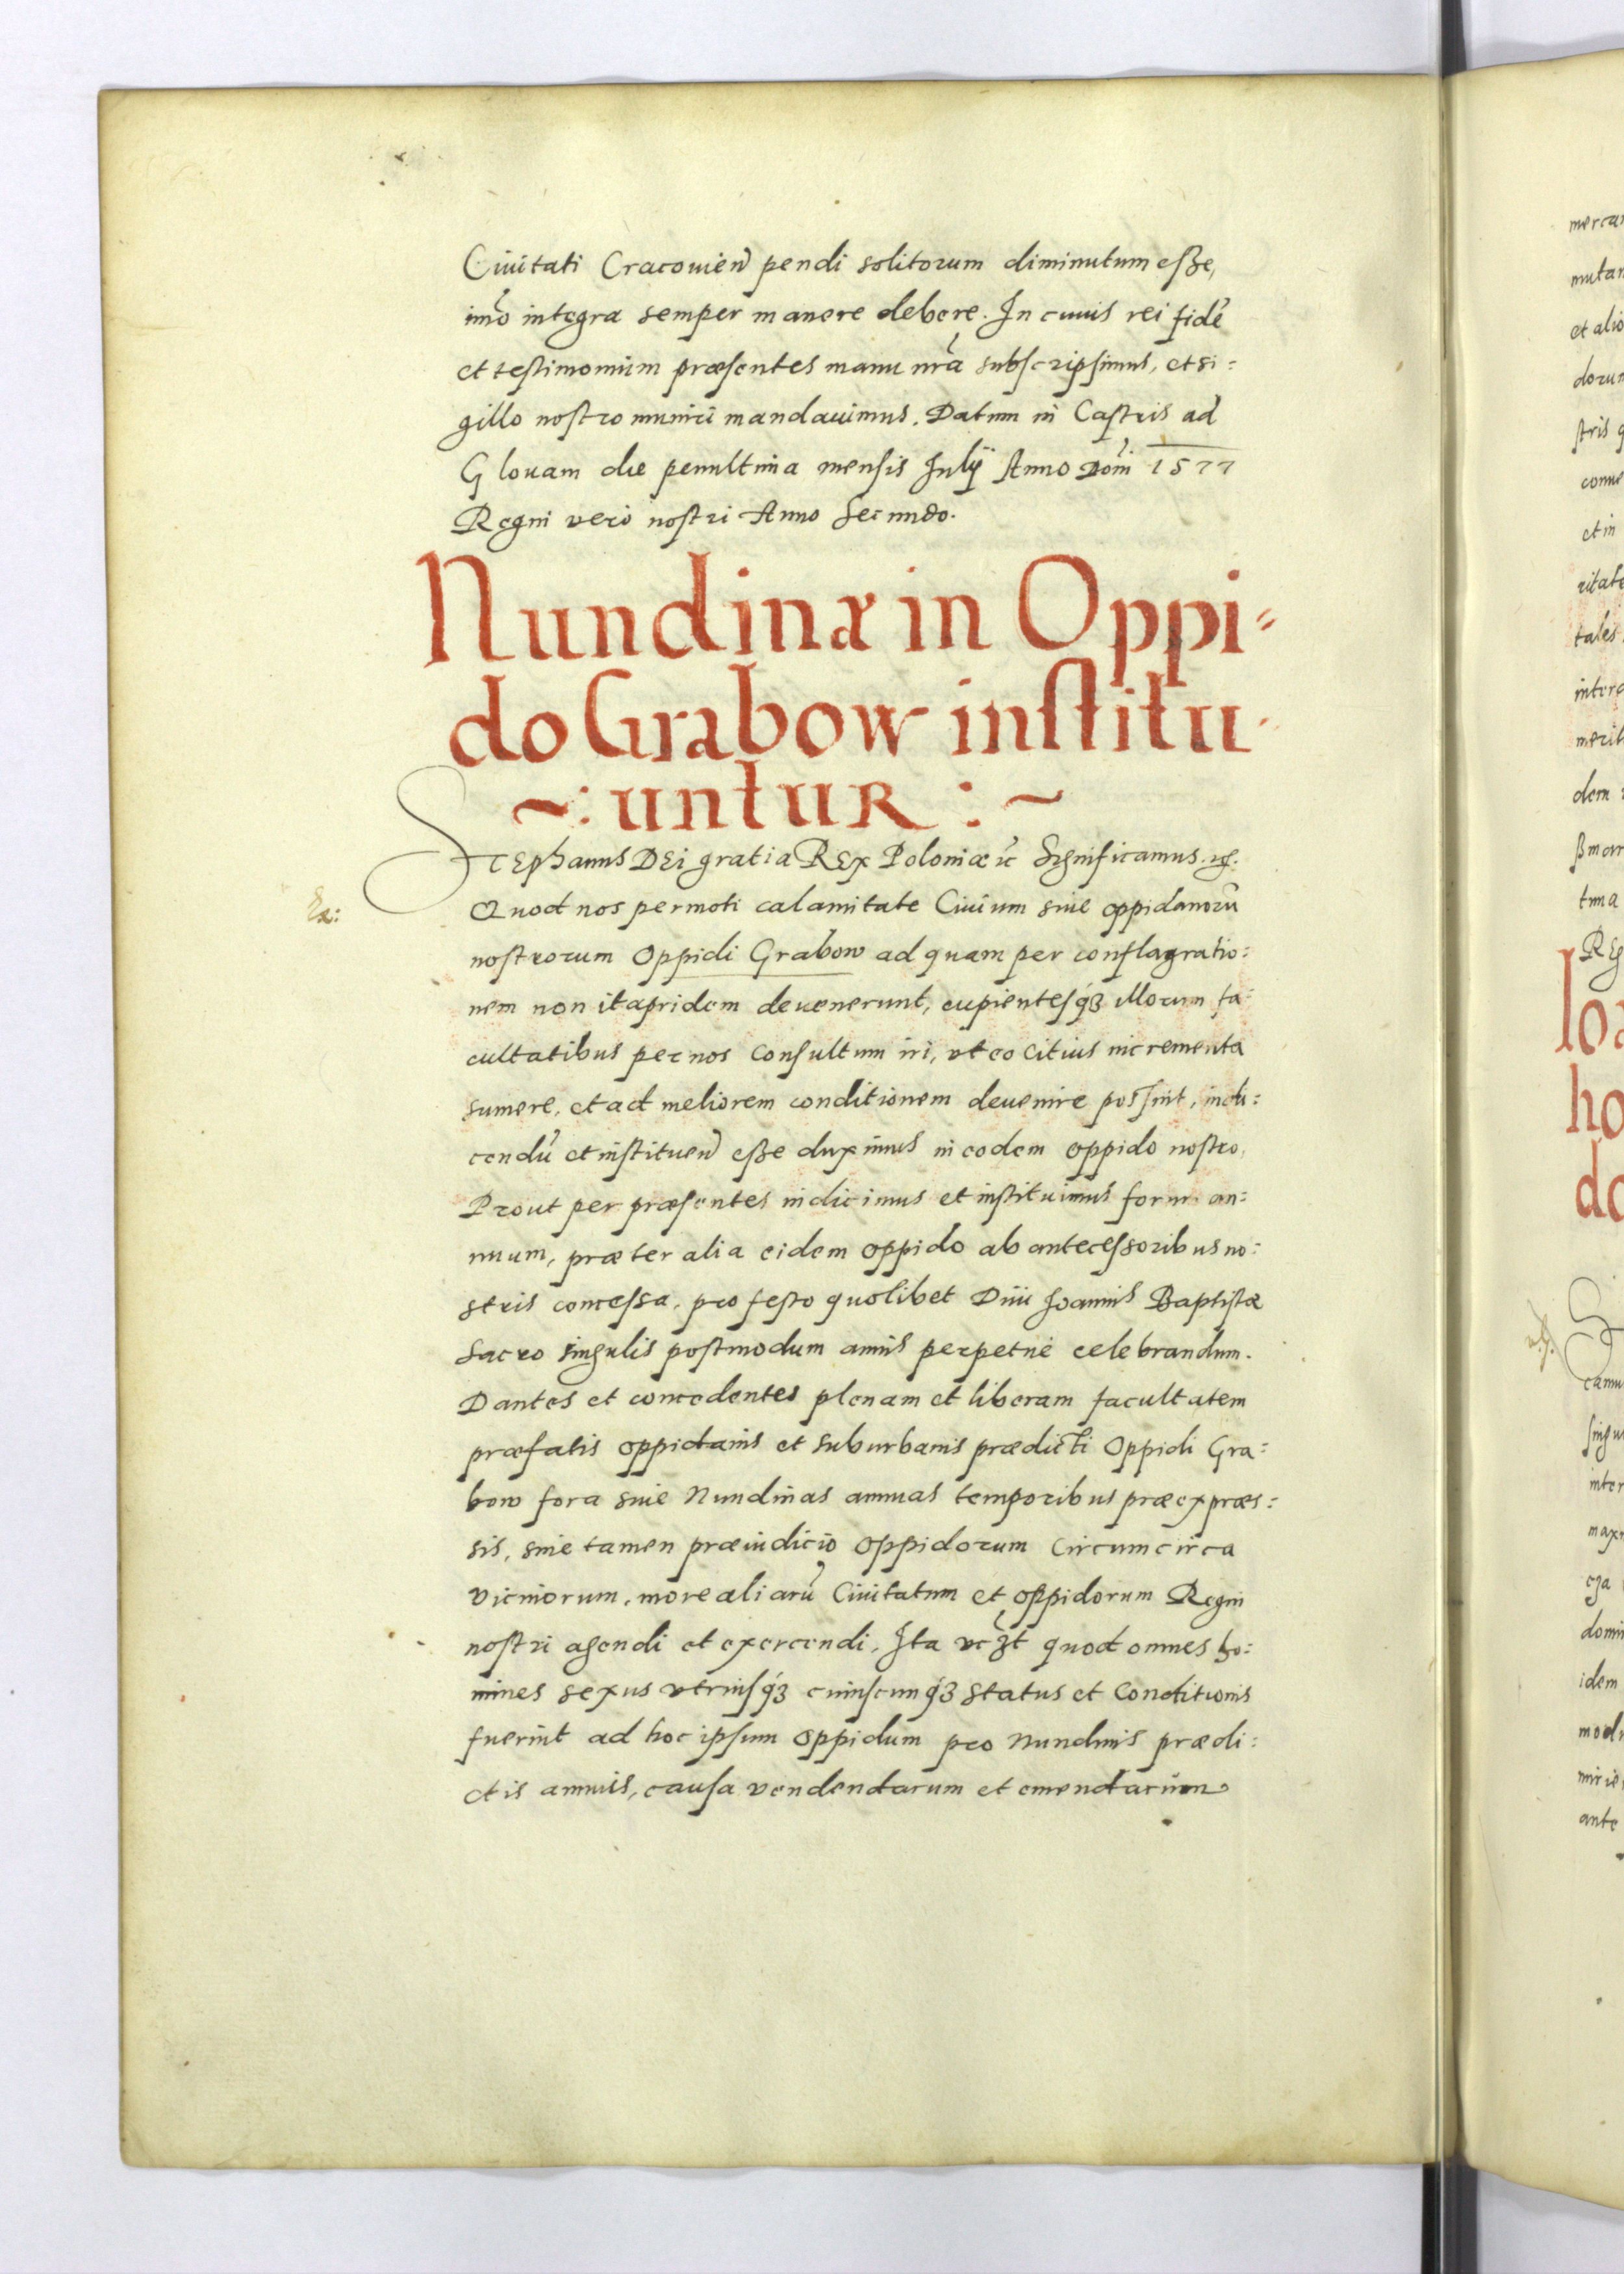 Ciuitati Cracouien̄ pendi solitorum diminutum eße,
imò integra semper manere debere. In cuius rei fidē
et testimonium præsentes manu nr̄a subscripsimus, et si:
gillo nostro muniri mandauimus. Datum in Castris ad
Glovam die penultima mensis Julij Anno Domi 1577
Regni vero nostri Anno Secundo.
Nundinæ in Oppi-
do Grabow institu-
~: untur : ~
Stephanus DEi gratia REx Poloniæ ꝛc Significamus
Quod nos permoti calamitate Ciuium siue oppidanorū
nostrorum Oppidi Grabow ad quam per conflagratio:
nem non itapridem deuenerunt, cupientesq́ꝫ illorum fa:
cultatibus per nos consultum iri, vt eo citius incrementa
sumere, et ad meliorem conditionem deuenire possint, indi:
cendū et instituen̄ eße duximus in eodem oppido nostro,
Prout per præsentes indicimus et instituimus forum an:
nuum, præter alia eidem oppido ab antecessoribus no:
stris concessa, pro festo quolibet Diui Joannis Baptistæ
Sacro singulis postmodum annis perpetuè celebrandum.
Dantes et concedentes plenam et liberam facultatem
præfatis oppidanis et suburbanis prædicti Oppidi Gra:
bow fora siue Nundinas annuas temporibus præexpræs:
sis, sine tamen præiudicio Oppidorum circumcirca
vicinorum, more aliarū Ciuitatum et oppidorum Regni
nostri agendi et exercendi. Ita vꝫt quod omnes ho:
mines sexus vtriusq́ꝫ cuiuscunq́ꝫ status et conditionis
fuerint ad hoc ipsum Oppidum pro Nundinis prædi:
ctis annuis, causa vendendarum et emendarum
mercan
mutan
et alio
dorum
stris
conue
et in
ritate
tales
interc
merit
dem
ßmar
tima
Reg
Io
ho
do
camu
singu
inter
maxi
cza
domi
idem
modu
ante